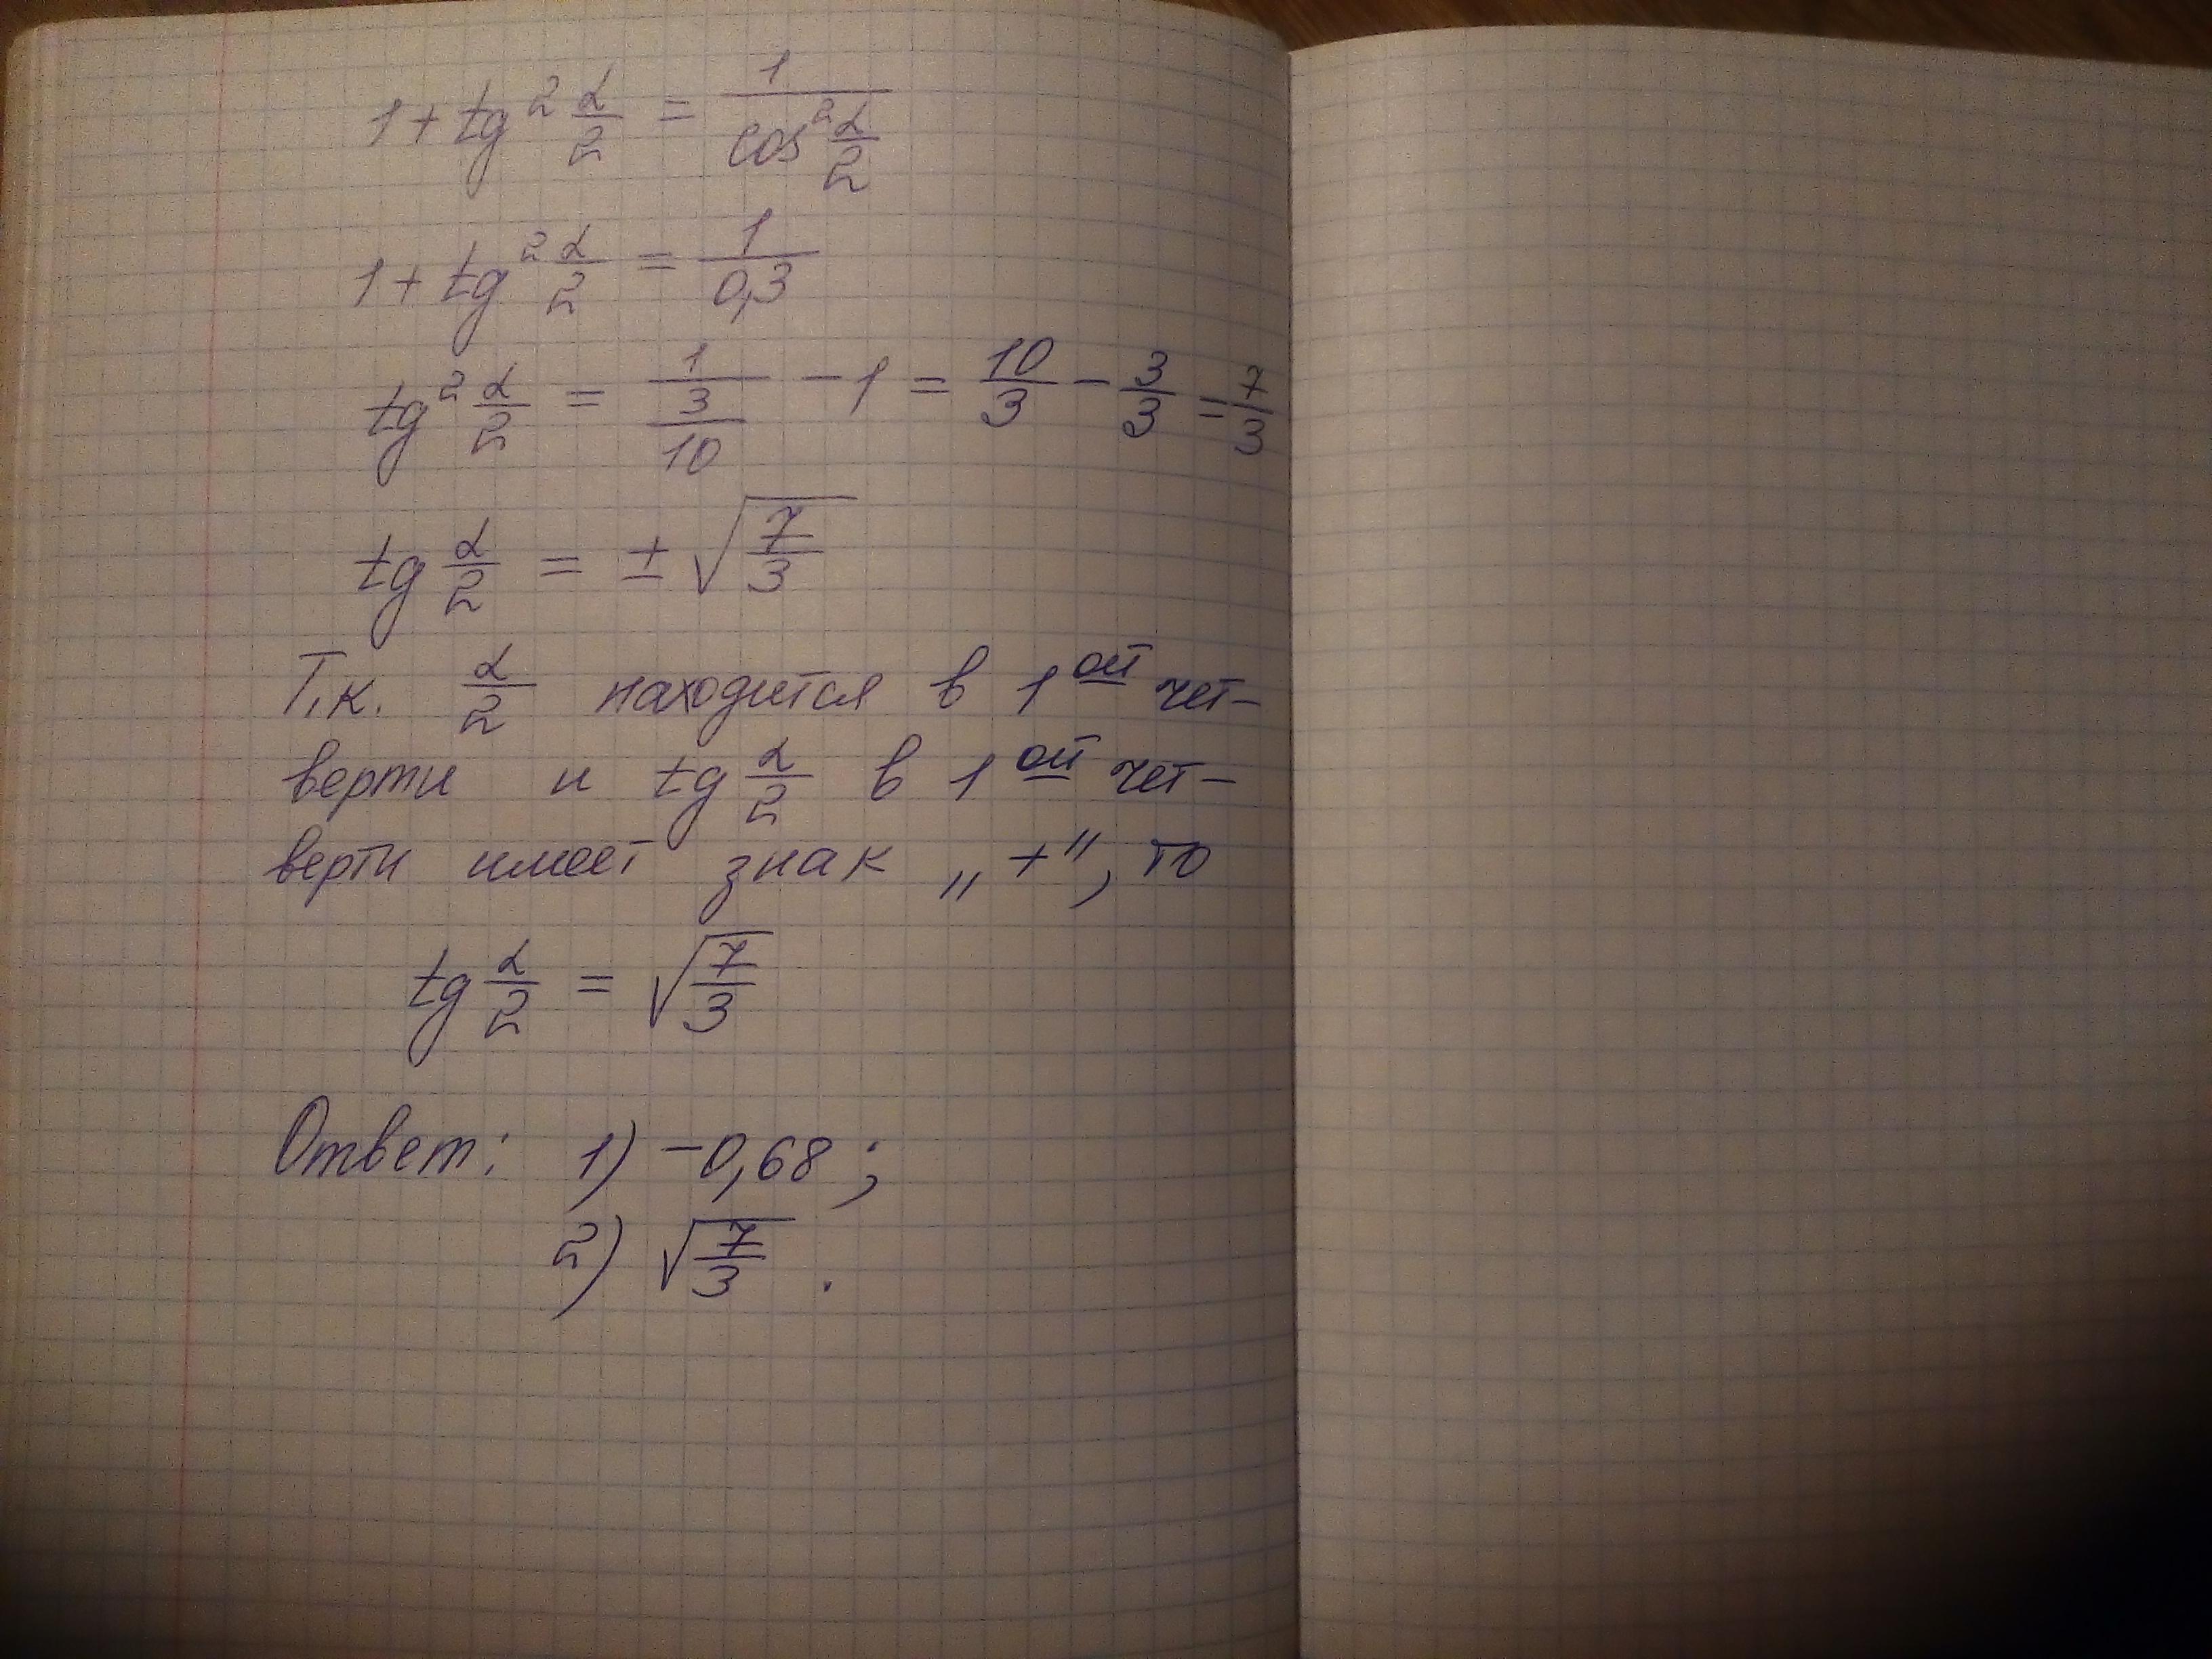 1 + tg² α/2 = 1/cos² α/2
1 + tg² α/2 = 1/0,3
tg² α/2 = 1/(3/10) − 1 = 10/3 − 3/3 = 7/3
tg α/2 = ± √(7/3)
Т.к. α/2 находится в 1ой чет-
верти и tg α/2 в 1ой чет-
верти имеет знак „+", то
tg α/2 = √(7/3)
Ответ: 1) −0,68;
2) √(7/3).